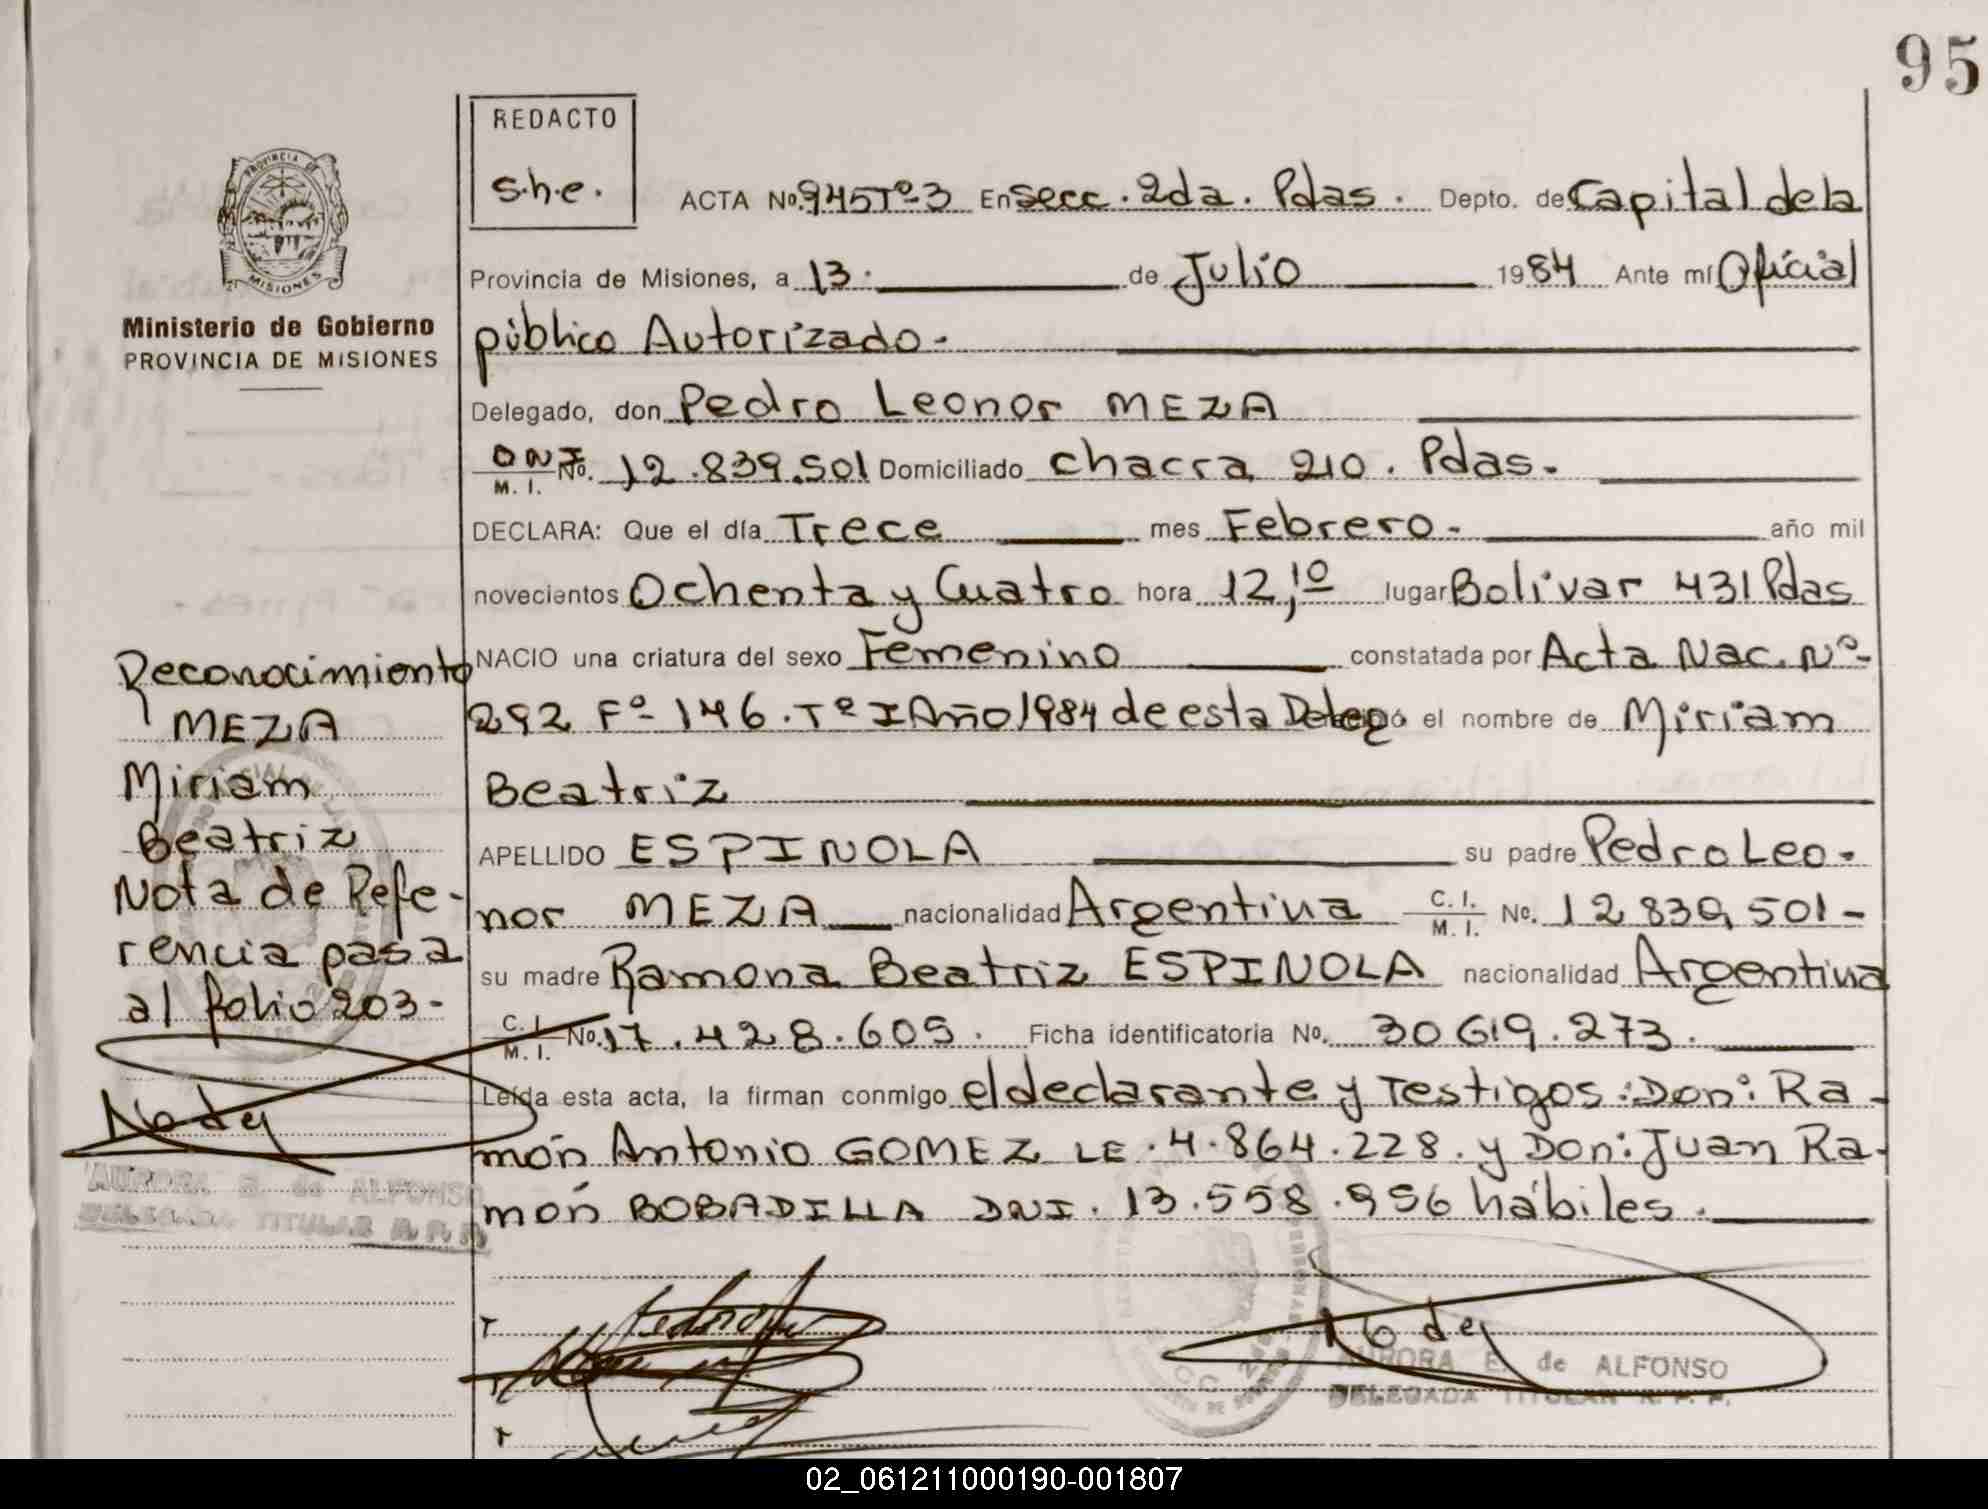 95
REDACTO
s.h.e.
ACTA No. 945 Tº-3 En Secc. 2da. Pdas. Depto. de Capital de la
PROVINCIA DE
MISIONES
Provincia de Misiones, a 13. de Julio 1984 Ante mí Oficial
Ministerio de Gobierno
PROVINCIA DE MISIONES
público Autorizado.
Delegado, don Pedro Leonor MEZA
DNI No. 12.839.501 Domiciliado chacra 210. Pdas.
M. I.
DECLARA: Que el día Trece mes Febrero. año mil
novecientos Ochenta y Cuatro hora 12,10 lugar Bolívar 431 Pdas
NACIO una criatura del sexo Femenino constatada por Acta Nac. Nº-
292 Fº- 146. Tº I Año 1984 de esta Deleg ó el nombre de Miriam
Beatriz
APELLIDO ESPINOLA su padre Pedro Leo-
nor MEZA nacionalidad Argentina C. I. M. I. No. 12 839,501-
su madre Ramona Beatriz ESPINOLA nacionalidad Argentina
C. I. M. I. No. 17.428.605. Ficha identificatoria No. 30619.273.
Leída esta acta, la firman conmigo el declarante y Testigos: Don: Ra-
món Antonio GOMEZ LE. 4.864.228. y Don: Juan Ra-
món BOBADILLA DNI. 13.558.956 hábiles.
Reconocimiento
MEZA
Miriam
Beatriz
Nota de Refe-
rencia pasa
al folio 203-
AURORA E. de ALFONSO
DELEGADA TITULAR R. P. P.
AURORA E. de ALFONSO
DELEGADA TITULAR R. P. P.
02_061211000190-001807